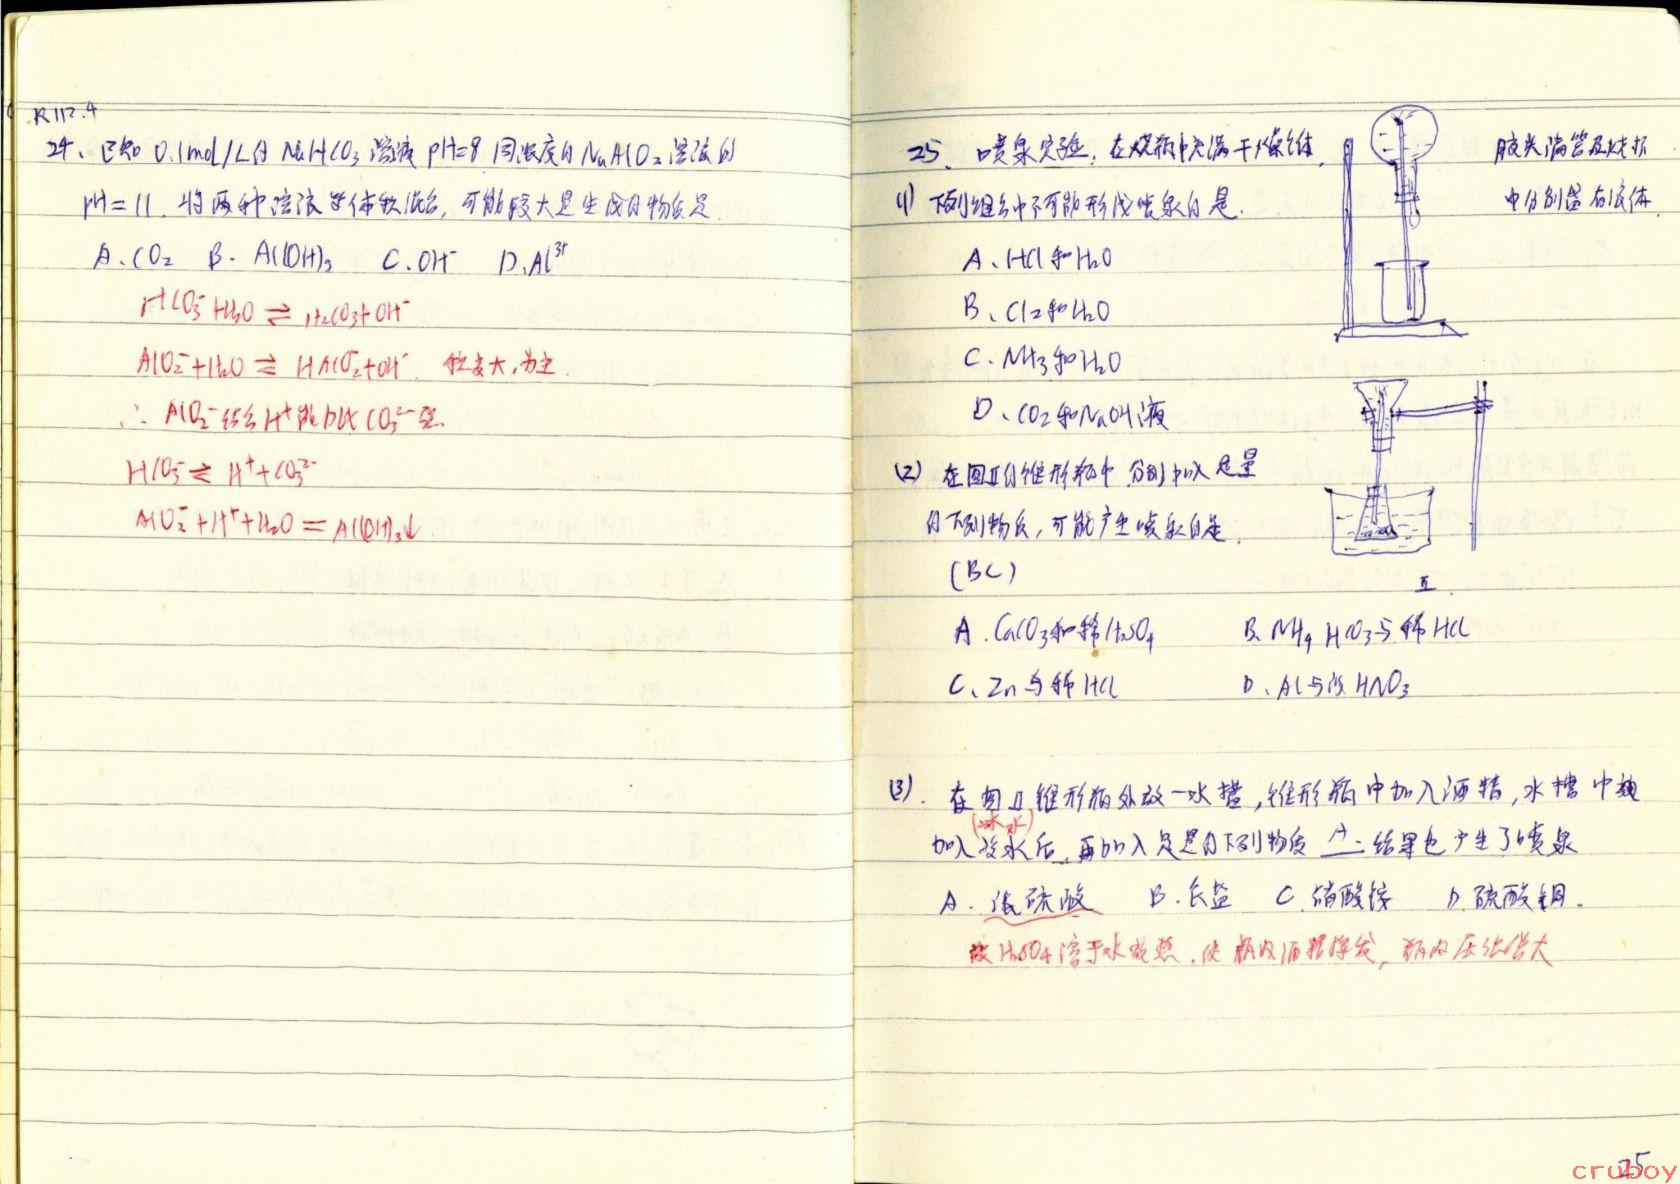 R117.4
24、已知 0.1mol/L的 NaHCO₃ 溶液 pH=8 同浓度的 NaAlO₂ 溶液的
pH=11. 将两种溶液等体积混合, 可能较大量生成的物质是.
A.CO₂ B. Al(OH)₃ C.OH⁻ D.Al³⁺
HCO₃⁻+H₂O ⇌ H₂CO₃+OH⁻
AlO₂⁻+H₂O ⇌ HAlO₂+OH⁻. 程度大,为主.
∴ AlO₂⁻结合H⁺能力比 CO₃²⁻强.
HCO₃⁻ ⇌ H⁺+CO₃²⁻
AlO₂⁻+H⁺+H₂O = Al(OH)₃↓
25、喷泉实验, 在烧瓶中充满干燥气体, 胶头滴管及烧杯
中分别盛有液体
(1) 下列组合中不可能形成喷泉的是.
A、HCl和H₂O
B、Cl₂和H₂O
C. NH₃和H₂O
D、CO₂和NaOH液
(2) 在图Ⅱ的锥形瓶中 分别加入足量
的下列物质, 可能产生喷泉的是.
(BC)
Ⅱ.
A. CaCO₃和稀H₂SO₄ B、NH₄HCO₃与稀HCl
C、Zn与稀HCl D、Al与浓HNO₃
(3). 在图Ⅱ锥形瓶外放一水槽, 锥形瓶中加入酒精, 水槽中
(冰水)
加入冷水后, 再加入足量的下列物质 A. 结果也产生了喷泉
A. 浓硫酸 B. 食盐 C. 硝酸铵 D. 硫酸铜.
浓H₂SO₄溶于水放热, 使瓶内酒精挥发, 瓶内压强增大
25
cruboy